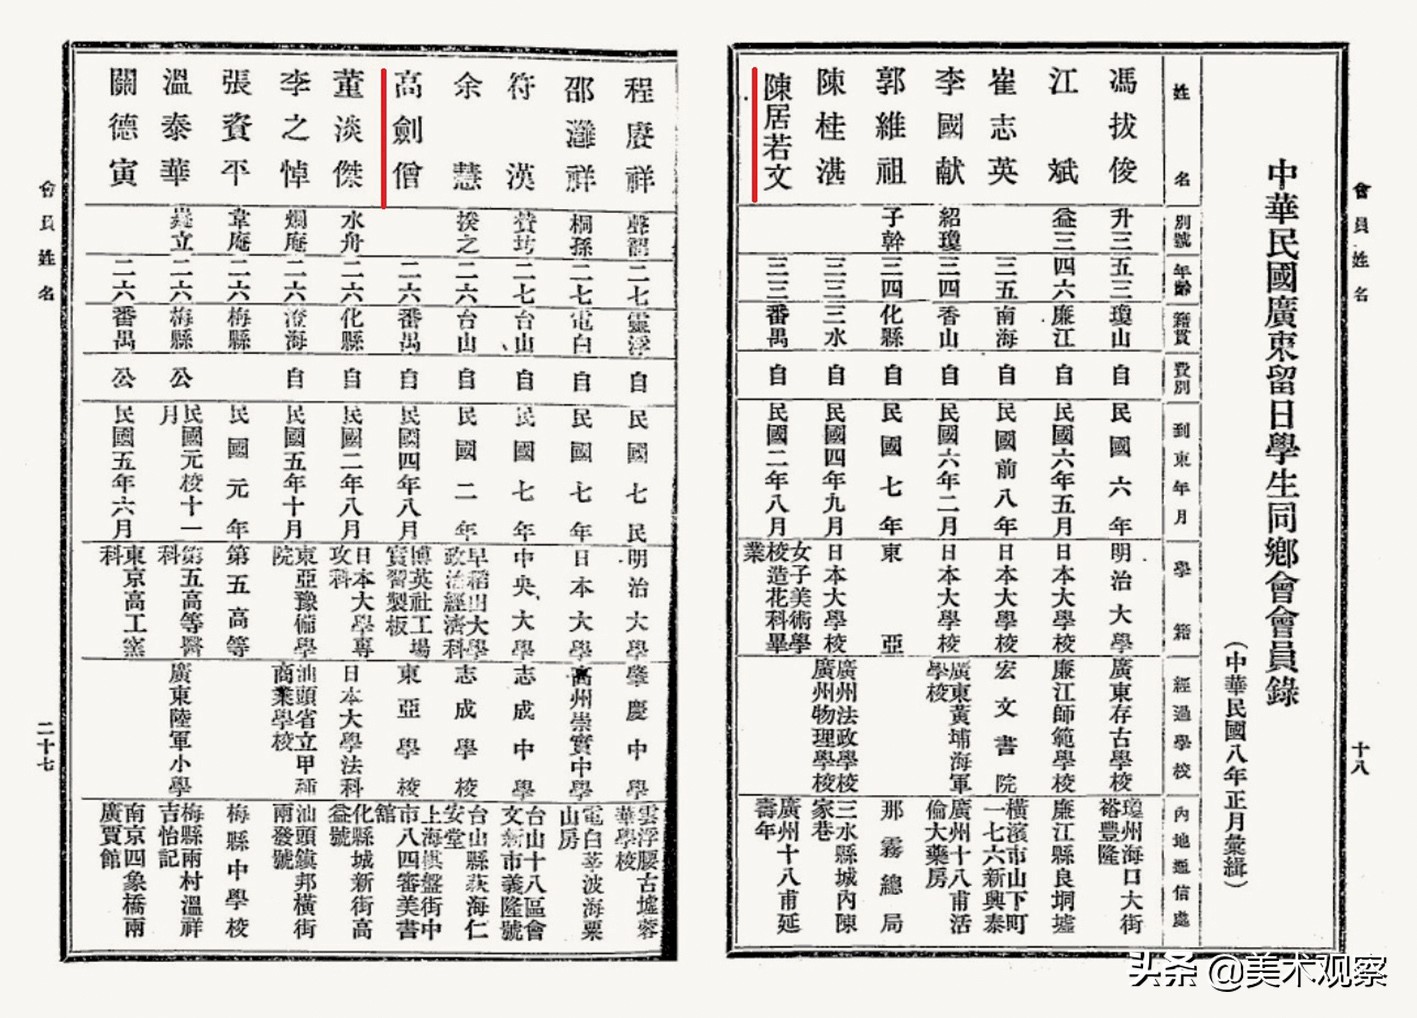 中華民國廣東留日學生同鄉會會員錄
（中華民國八年正月彙緝）
會員姓名
十八
姓名 別號 年齡 籍貫 費別 到東年月 學籍 經過學校 內地通信處
馮拔俊 升三 五三 瓊山 自 民國六年 明治大學 廣東存古學校 瓊州海口大街裕豐隆
江斌 益三 四六 廉江 自 民國六年五月 日本大學校 廉江師範學校 廉江縣良垌墟
崔志英 三五 南海 自 民國前八年 日本大學校 宏文書院 橫濱市山下町一七六新興泰
李國献 紹瓊 三四 香山 自 民國六年二月 日本大學校 廣東黃埔海軍學校 廣州十八甫活倫大藥房
郭維祖 子幹 三四 化縣 自 民國七年 東亞 那霧總局
陳桂湛 三三 三水 自 民國四年九月 日本大學校 廣州法政學校廣州物理學校 三水縣城內陳家巷
陳居若文 三三 番禺 自 民國二年八月 女子美術學校造花科畢業 廣州十八甫延壽年
程賡祥 二七 雲浮 自 民國七民 明治大學 肇慶中學 雲浮腰古墟蓉華學校
邵灘祥 桐孫 二七 電白 自 民國七年 日本大學 高州崇實中學 電白莘波海栗山房
符漢 贊坊 二七 台山 自 民國七年 中央大學 志成中學 台山十八區會文新市義隆號
余慧 揆之 二六 台山 自 民國二年 早稻田大學政治經濟科 志成學校 台山縣荻海仁安堂
高劍僧 二六 番禺 自 民國四年八月 博英社工場實習製板 東亞學校 上海棋盤街中市八四審美書館
董淡傑 水舟 二六 化縣 自 民國二年八月 日本大學專攻科 日本大學法科 化縣城新街高益號
李之悼 烱庵 二六 澄海 自 民國五年十月 東亞豫備學院 汕頭省立甲種商業學校 汕頭鎮邦橫街兩發號
張資平 韋庵 二六 梅縣 民國元年 第五高等 梅縣中學校
溫泰華 立 二六 梅縣 公 民國元校十一月 第五高等醫科 廣東陸軍小學 梅縣兩村溫祥吉怡記
關德寅 二六 番禺 公 民國五年六月 東京高工窯科 南京四象橋兩廣賈館
會員姓名
二十七
头条 @美术观察